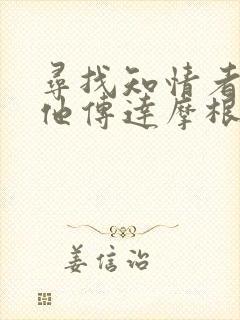 尋找知情者
他傳達摩根
姜信詒